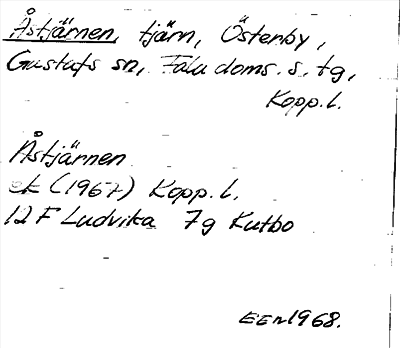 Åstjärnen, tjärn, Östenby,
Gustafs sn, Falu doms. s. tg,
Kopp. l.
Åstjärnen
ek (1967) Kopp. l.
12 F Ludvika 7g Kutbo
EEn 1968.